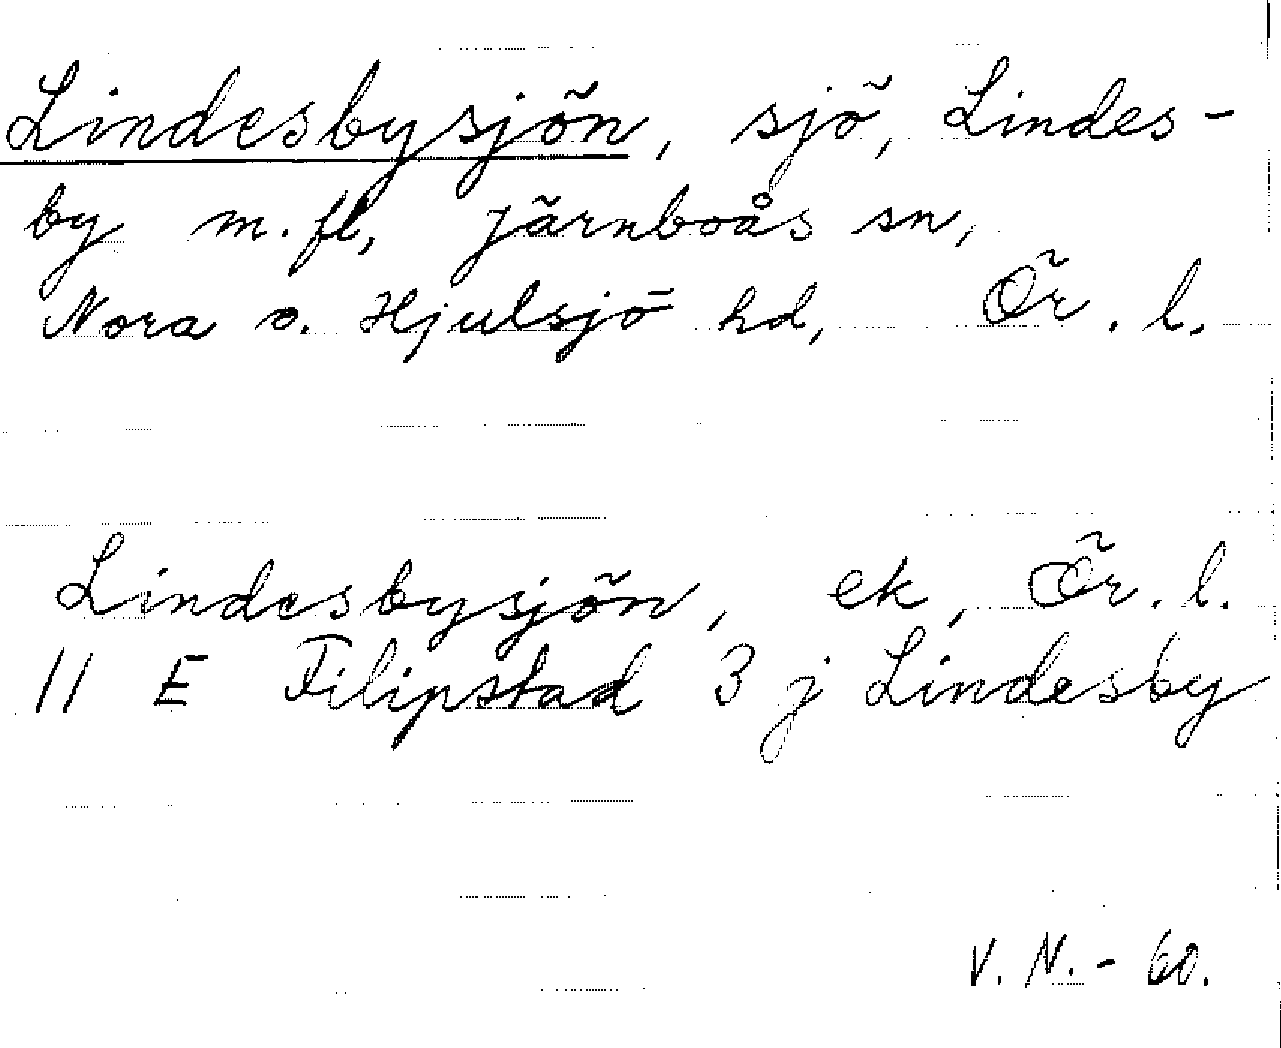 Lindesbysjön, sjö, Lindes-
by m.fl, Järnboås sn,
Nora o. Hjulsjö hd, Ör. l.
Lindesbysjön, ek, Ör. l.
11 E Filipstad 3 j Lindesby
V. N. - 60.